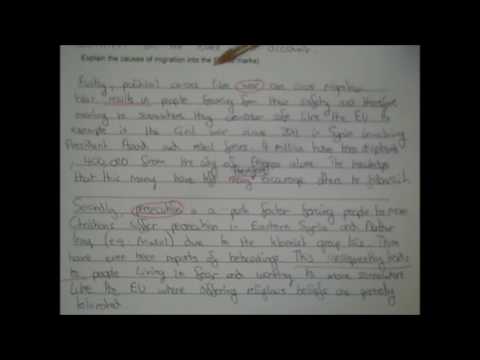 Explain the causes of migration into the
marks)
Firstly, political causes like war can cause migration
that results in people fearing for their safety and therefore
moving to somewhere they consider safe like the EU. An
example is the Civil war since 2011 in Syria involving
President Assad and rebel forces. 4 million have been displaced,
400,000 from the city of alone. The knowledge
that this many have left may encourage others to
Therefore
Secondly, persecution is a push factor forcing people to move
Christians suffer persecution in Eastern Syria and
Iraq (e.g. Mosul) due to the Islamist group Isis. There
have even been reports of beheadings. This consequently leads
to people living in fear and wanting to move somewhere
like the EU where differing religious beliefs are
tolerated.